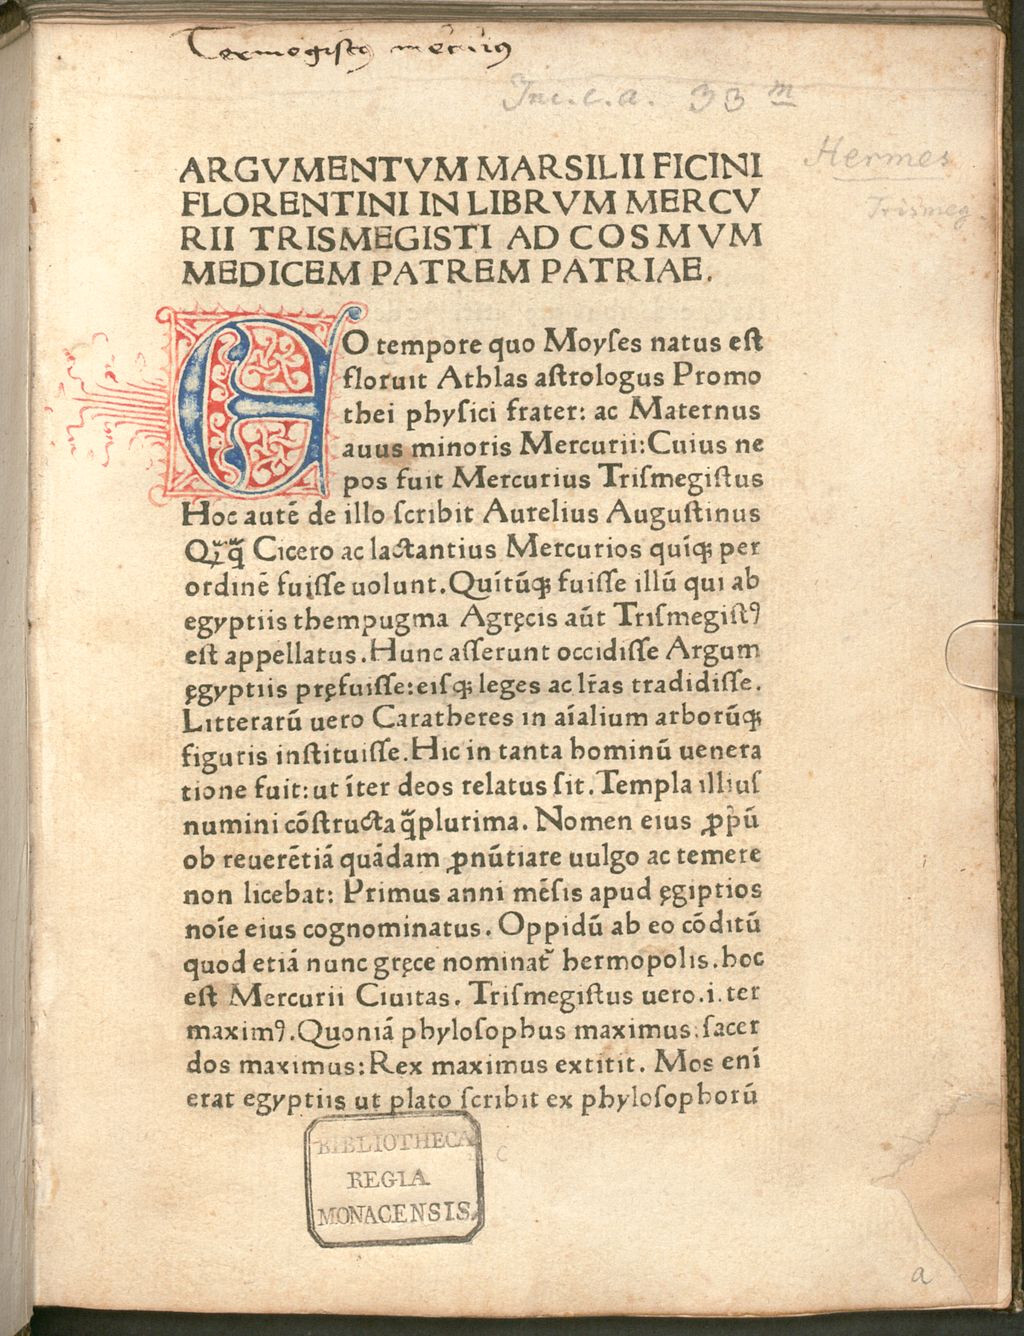 Termegistꝰ mercuriꝰ
Inc. c. a. 33 m
Hermes
Trismeg.
ARGVMENTVM MARSILII FICINI
FLORENTINI IN LIBRVM MERCV
RII TRISMEGISTI AD COSMVM
MEDICEM PATREM PATRIAE.
EO tempore quo Moyſes natus eſt
floruit Athlas aſtrologus Promo
thei phyſici frater: ac Maternus
auus minoris Mercurii:Cuius ne
pos fuit Mercurius Triſmegiſtus
Hoc autē de illo ſcribit Aurelius Auguſtinus
Cicero ac lactantius Mercurios quīqꝫ per
ordinē fuiſſe uolunt.Quītūqꝫ fuiſſe illū qui ab
egyptiis thempugma Agręcis aūt Triſmegiſtꝰ
eſt appellatus.Hunc aſſerunt occidiſſe Argum
ęgyptiis pręfuiſſe:eiſqꝫ leges ac lr̄as tradidiſſe.
Litterarū uero Caratheres in aīalium arborūqꝫ
figuris inſtituiſſe.Hic in tanta hominū uenera
tione fuit:ut īter deos relatus ſit.Templa illiuſ
numini cōſtructa q̃plurima. Nomen eius ꝓpͥū
ob reuerētiā quādam ꝓnūtiare uulgo ac temere
non licebat: Primus anni mēſis apud ęgiptios
noīe eius cognominatus. Oppidū ab eo cōditū
quod etiā nunc gręce nominat᷑ hermopolis.hoc
eſt Mercurii Ciuitas. Triſmegiſtus uero.i.ter
maximꝰ.Quoniā phyloſophus maximus:ſacer
dos maximus:Rex maximus extitit. Mos enī
erat egyptiis ut plato ſcribit ex phyloſophorū
BIBLIOTHECA
REGIA
MONACENSIS.
a